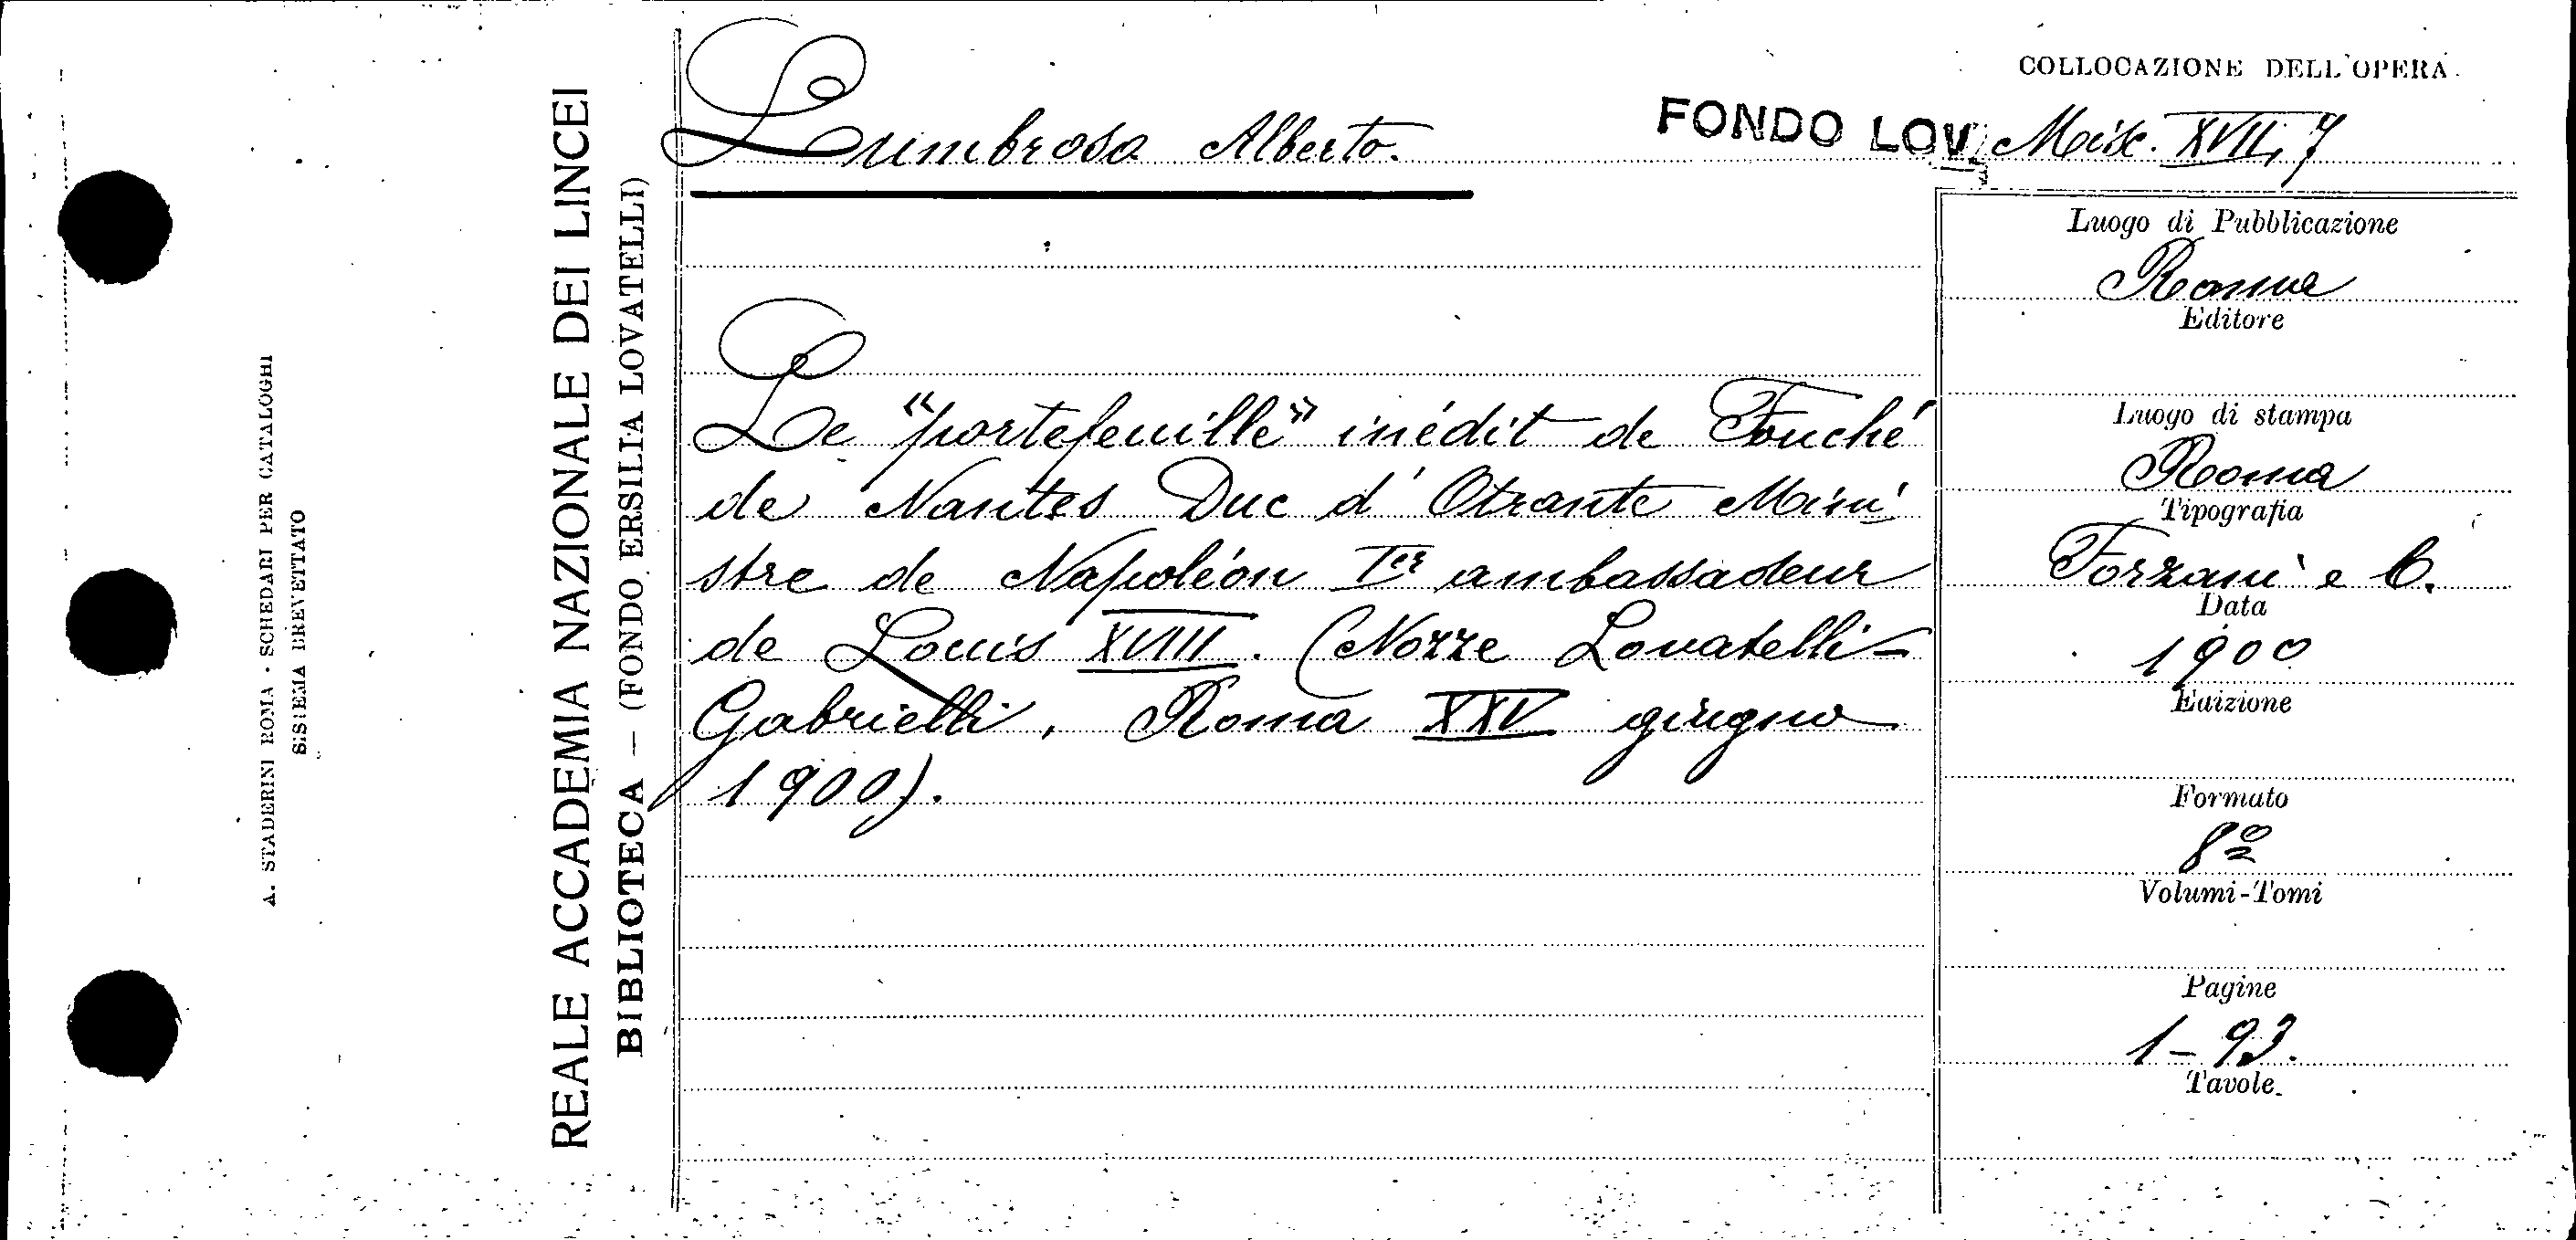 A. STADERINI ROMA - SCHEDARI PER CATALOGHI
SISTEMA BREVETTATO
REALE ACCADEMIA NAZIONALE DEI LINCEI
BIBLIOTECA — (FONDO ERSILIA LOVATELLI)
COLLOCAZIONE DELL'OPERA
Lumbroso Alberto.
FONDO LOV. Misc. XVII, 7
Le "portefeuille" inédit de Fouché
de Nantes Duc d'Otrante Mini
stre de Napoléon Ier ambassadeur
de Louis XVIII. (Nozze Lovatelli-
Gabrielli, Roma XXV giugno
1900).
Luogo di Pubblicazione
Roma
Editore
Luogo di stampa
Roma
Tipografia
Forzani e C.
Data
1900
Edizione
Formato
8º
Volumi-Tomi
Pagine
1-93.
Tavole